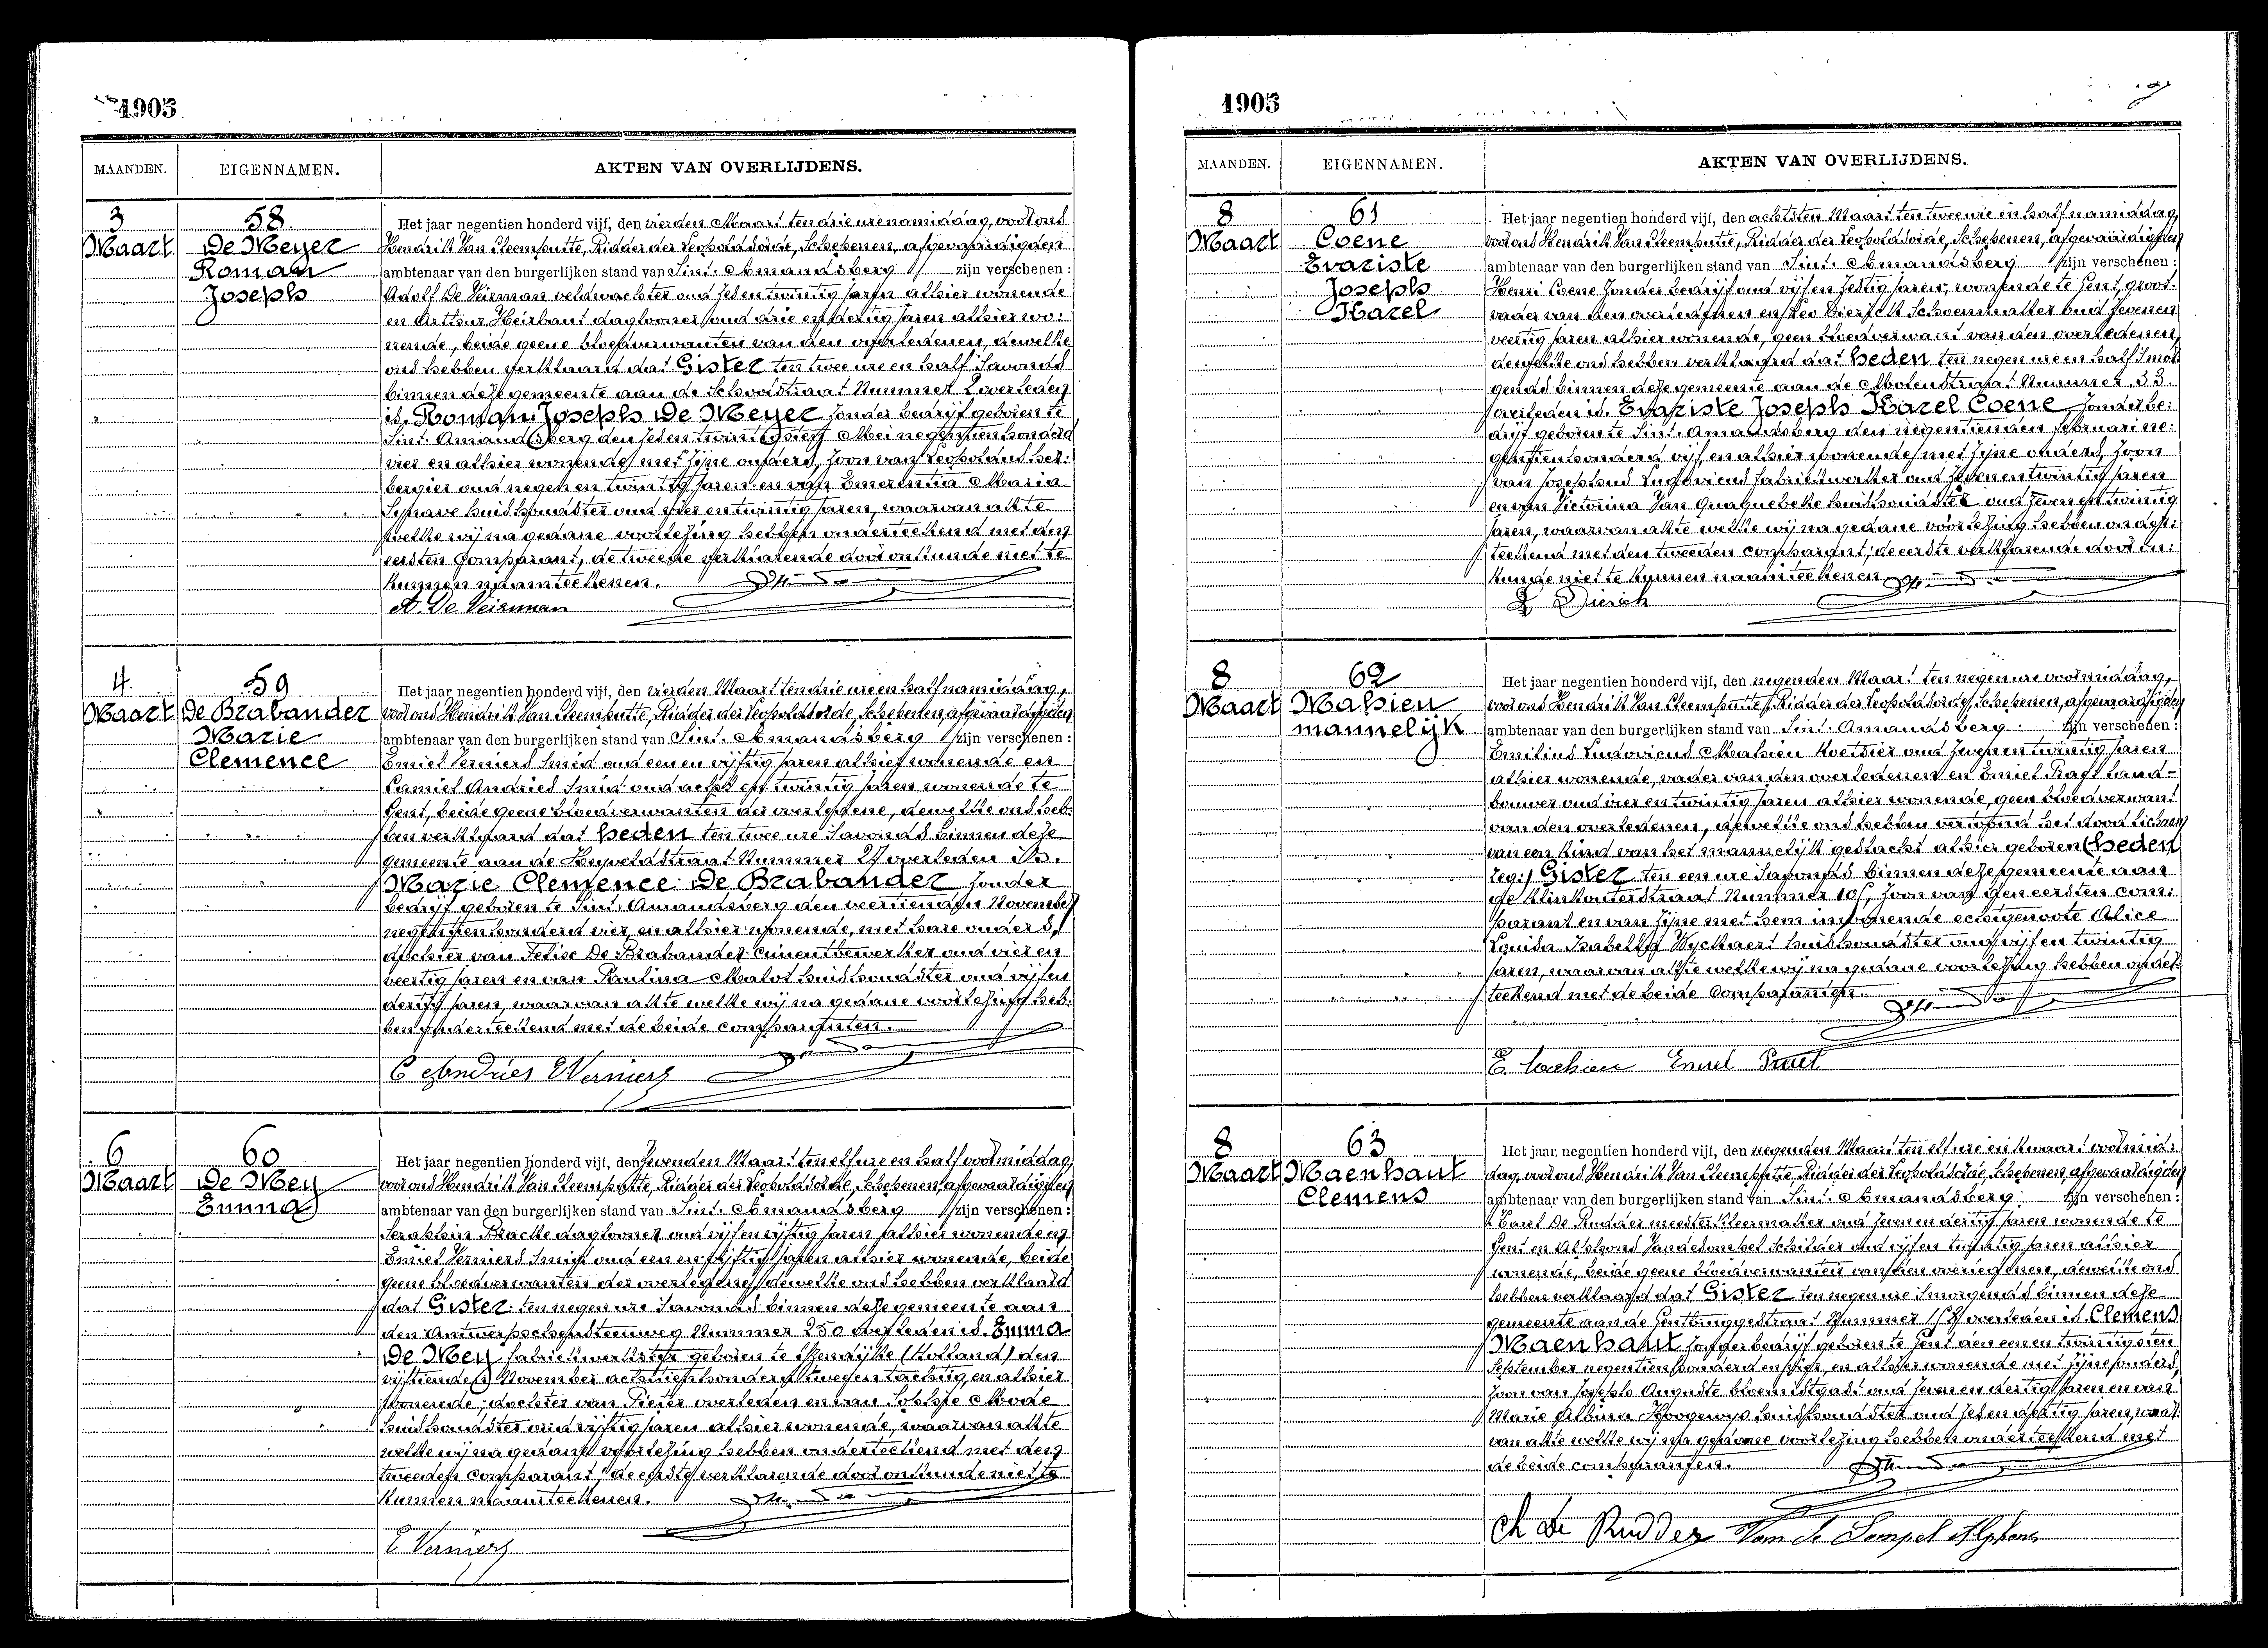 1905
MAANDEN. EIGENNAMEN. AKTEN VAN OVERLIJDENS.
3 Maart
58
De Meyer
Roman
Joseph
Het jaar negentien honderd vijf, den vierden Maart ten drie ure namiddag, voor ons
Hendrik Van Steenputte, Ridder der Leopoldsorde, Schepenen, afgevaardigden
ambtenaar van den burgerlijken stand van Sint Amandsberg zijn verschenen:
Adolf De Veirman veldwachter oud zes en twintig jaren alhier wonende
en Arthur Heirbaut daglooner oud drie en dertig jaren alhier wo:
nende, beide geene bloedverwanten van den overledenen, dewelke
ons hebben verklaard dat Gister ten twee ure en half 's avonds
binnen deze gemeente aan de Schoolstraat Nummer 2 overleden
is Roman Joseph De Meyer zonder bedrijf geboren te
Sint Amandsberg den zes en twintigsten Mei negentien honderd
vier en alhier wonende met zijne ouders, zoon van Leopoldus her:
bergier oud negen en twintig jaren en van Emerentia Maria
huishoudster oud vier en twintig jaren, waarvan akte
welke wij na gedane voorlezing hebben onderteekend met den
eersten Comparant, de tweede verklarende door onkunde niet te
kunnen naamteekenen.
A. De Veirman
4 Maart
59
De Brabander
Marie
Clemence
Het jaar negentien honderd vijf, den vierden Maart ten drie ure en half namiddag,
voor ons Hendrik Van Steenputte, Ridder der Leopoldsorde, Schepenen, afgevaardigden
ambtenaar van den burgerlijken stand van Sint Amandsberg zijn verschenen:
Emiel Verniers smid oud een en vijftig jaren alhier wonende en
Camiel Andries smid oud acht en twintig jaren wonende te
Gent, beide geene bloedverwanten der overledene, dewelke ons heb:
ben verklaard dat heden ten twee ure 's avonds binnen deze
gemeente aan de straat Nummer 27 overleden is.
Marie Clemence De Brabander zonder
bedrijf geboren te Sint Amandsberg den veertienden November
negentien honderd vier, en alhier wonende, met hare ouders,
dochter van Felix De Brabander Cimentbewerker oud vier en
veertig jaren en van Paulina huishoudster oud vijf en
dertig jaren, waarvan akte welke wij na gedane voorlezing heb:
ben onderteekend met de beide comparanten.
C Andries E Verniers
6 Maart
60
De Mey
Emma
Het jaar negentien honderd vijf, den zevenden Maart ten elf ure en half voormiddag,
voor ons Hendrik Van Steenputte, Ridder der Leopoldsorde, Schepenen, afgevaardigden
ambtenaar van den burgerlijken stand van Sint Amandsberg zijn verschenen:
Seraphin Bracke daglooner oud vijf en vijftig jaren alhier wonende en
Emiel Verniers smid oud een en vijftig jaren alhier wonende, beide
geene bloedverwanten der overledene, dewelke ons hebben verklaard
dat Gister ten negen ure 's avonds binnen deze gemeente aan
den Antwerpschensteenweg Nummer 250 overleden is Emma
De Mey fabriekwerkster geboren te IJzendijke (Holland) den
vijftienden November achttien honderd twee en tachtig, en alhier
wonende, dochter van Pieter overleden en van Sophie
huishoudster oud vijftig jaren alhier wonende, waarvan akte
welke wij na gedane voorlezing hebben onderteekend met den
tweeden Comparant, de eerste verklarende door onkunde niet te
kunnen naamteekenen.
E Verniers
1905
MAANDEN. EIGENNAMEN. AKTEN VAN OVERLIJDENS.
8 Maart
61
Coene
Evariste
Joseph
Karel
Het jaar negentien honderd vijf, den achtsten Maart ten twee ure en half namiddag,
voor ons Hendrik Van Steenputte, Ridder der Leopoldsorde, Schepenen, afgevaardigden
ambtenaar van den burgerlijken stand van Sint Amandsberg zijn verschenen:
Henri Coene zonder bedrijf oud vijf en zestig jaren, wonende te Gent, groot:
vader van den overledenen en Leo Dierick Schoenmaker oud zeven en
veertig jaren alhier wonende, geen bloedverwant van den overledenen,
dewelke ons hebben verklaard dat heden ten negen ure en half 's mor:
gends binnen deze gemeente aan de Molenstraat Nummer 33.
overleden is. Evariste Joseph Karel Coene, zonder be:
drijf geboren te Sint Amandsberg den negentienden februari ne:
gentien honderd vijf, en alhier wonende met zijne ouders, zoon
van Josephus Ludovicus fabriekwerker oud zeven en twintig jaren
en van Victorina Van Quaquebeke huishoudster oud zeven en twintig
jaren, waarvan akte welke wij na gedane voorlezing hebben onder:
teekend met den tweeden comparant, de eerste verklarende door on:
kunde niet te kunnen naamteekenen
L Dierick
8 Maart
62
Mahieu
mannelijk
Het jaar negentien honderd vijf, den negenden Maart ten negen ure voormiddag,
voor ons Hendrik Van Steenputte, Ridder der Leopoldsorde, Schepenen, afgevaardigden
ambtenaar van den burgerlijken stand van Sint Amandsberg zijn verschenen:
Emilius Ludovicus Mahieu koetsier oud zeven en twintig jaren
alhier wonende, vader van den overledenen en Emiel Praet land-
bouwer oud vier en twintig jaren alhier wonende, geen bloedverwant
van den overledenen, dewelke ons hebben vertoond het dood lichaam
van een kind van het mannelijk geslacht alhier geboren (heden
leg:) Gister ten een ure 's avonds binnen deze gemeente aan
de Klinkouterstraat Nummer 10, zoon van den eersten com:
parant en van zijne met hem inwonende echtgenoote Alice
Louisa Isabella Wyckaert huishoudster oud vijf en twintig
jaren, waarvan akte welke wij na gedane voorlezing hebben onder:
teekend met de beide Comparanten.
E. Mahieu Emiel Praet
8 Maart
63
Maenhaut
Clemens
Het jaar negentien honderd vijf, den negenden Maart ten elf ure en kwaart voormid:
dag, voor ons Hendrik Van Steenputte, Ridder der Leopoldsorde, Schepenen, afgevaardigden
ambtenaar van den burgerlijken stand van Sint Amandsberg zijn verschenen:
Karel De Rudder meester kleermaker oud zeven en dertig jaren wonende te
Gent en Alphons Vandesompel Schilder oud vijf en twintig jaren alhier
wonende, beide geene bloedverwanten van den overledenen, dewelke ons
hebben verklaard dat Gister ten negen ure 's morgends binnen deze
gemeente aan de Gentbruggestraat Nummer overleden is Clemens
Maenhaut zonder bedrijf geboren te Gent den een en twintigsten
September negentien honderd en vier, en alhier wonende met zijne ouders,
zoon van Joseph Auguste bloemistgast oud zeven en dertig jaren en van
Marie Albina Hoogewys huishoudster oud zes en dertig jaren, waar:
van akte welke wij na gedane voorlezing hebben onderteekend met
de beide comparanten.
Ch De Rudder Van de Sompel Alphons